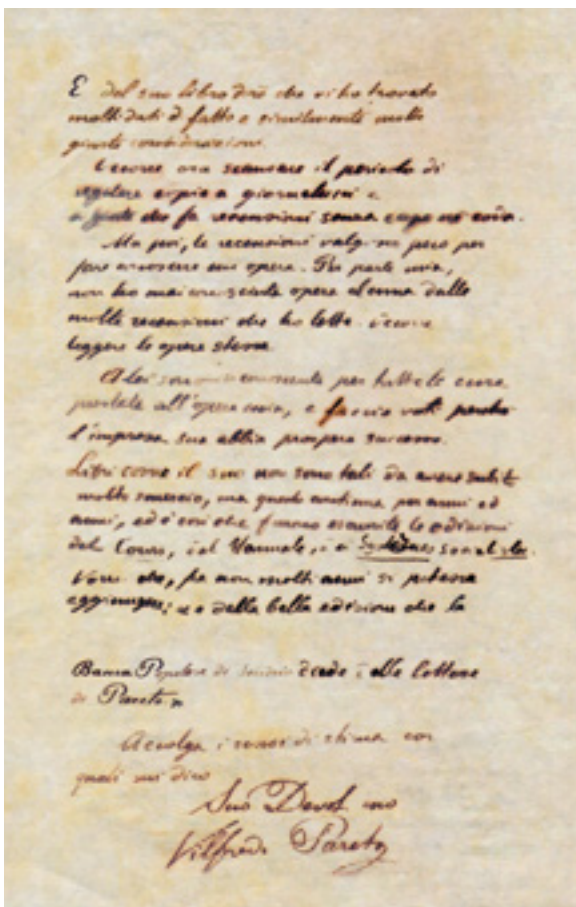 E del suo libro dirò che vi ho trovato
molti dati di fatto e similmente molte
giuste considerazioni.
Occorre ora scansare il pericolo di
copie a giornalisti e
a gente che fa recensioni senza capo nè coda.
Ma poi, le recensioni valgono poco per
fare conoscere una opera. Per parte mia,
non ho mai conosciuto opera alcuna dalle
molte recensioni che ho lette. Occorre
leggere le opere stesse.
A lei sono riconoscente per tutte le cure
all'opera mia, e faccio voti perchè
l'impresa sua abbia prospero successo.
Libri come il suo non sono tali da avere subito
molto smercio, ma questo continua per anni ed
anni, ed è così che furono esaurite le edizioni
del Cours, del Manuale, e
che, fra non molti anni si potesse
aggiungere: e della bella edizione che la
Banca Popolare di Sondrio diede alle lettere
di Pareto"
Accolga i sensi di stima con
quali mi dico
Suo Devot mo
Vilfredo Pareto